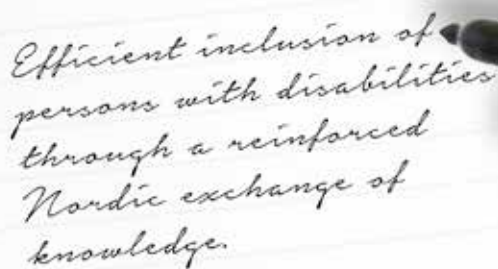 Efficient inclusion of
persons with disabilities
through a reinforced
Nordic exchange of
knowledge.